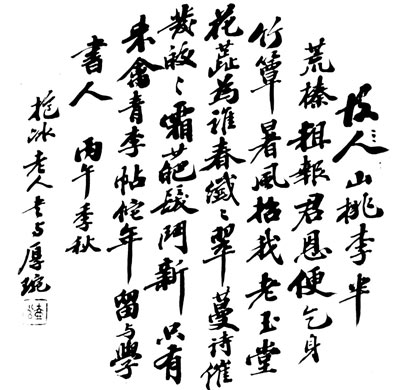 故人山桃李半
荒榛粗報君恩便乞身
竹簟暑風招我老玉堂
花蕊為誰春纖〻翠蔓詩催
發皪〻霜葩髮鬥新只有
来禽青李帖佗年留与學
書人 丙午季秋
抱冰老人書与厚琬